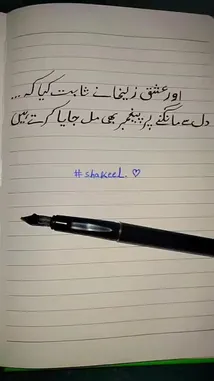 اور عشقِ زلیخا نے ثابت کیا کہ ...
دل سے مانگنے پر پیغمبر بھی مل جایا کرتے ہیں
#shakeel. ♡